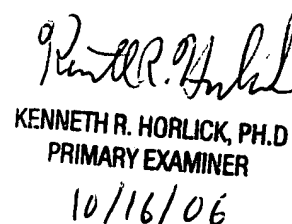 Kenneth R. Horlick
KENNETH R. HORLICK, PH.D
PRIMARY EXAMINER
10/16/06